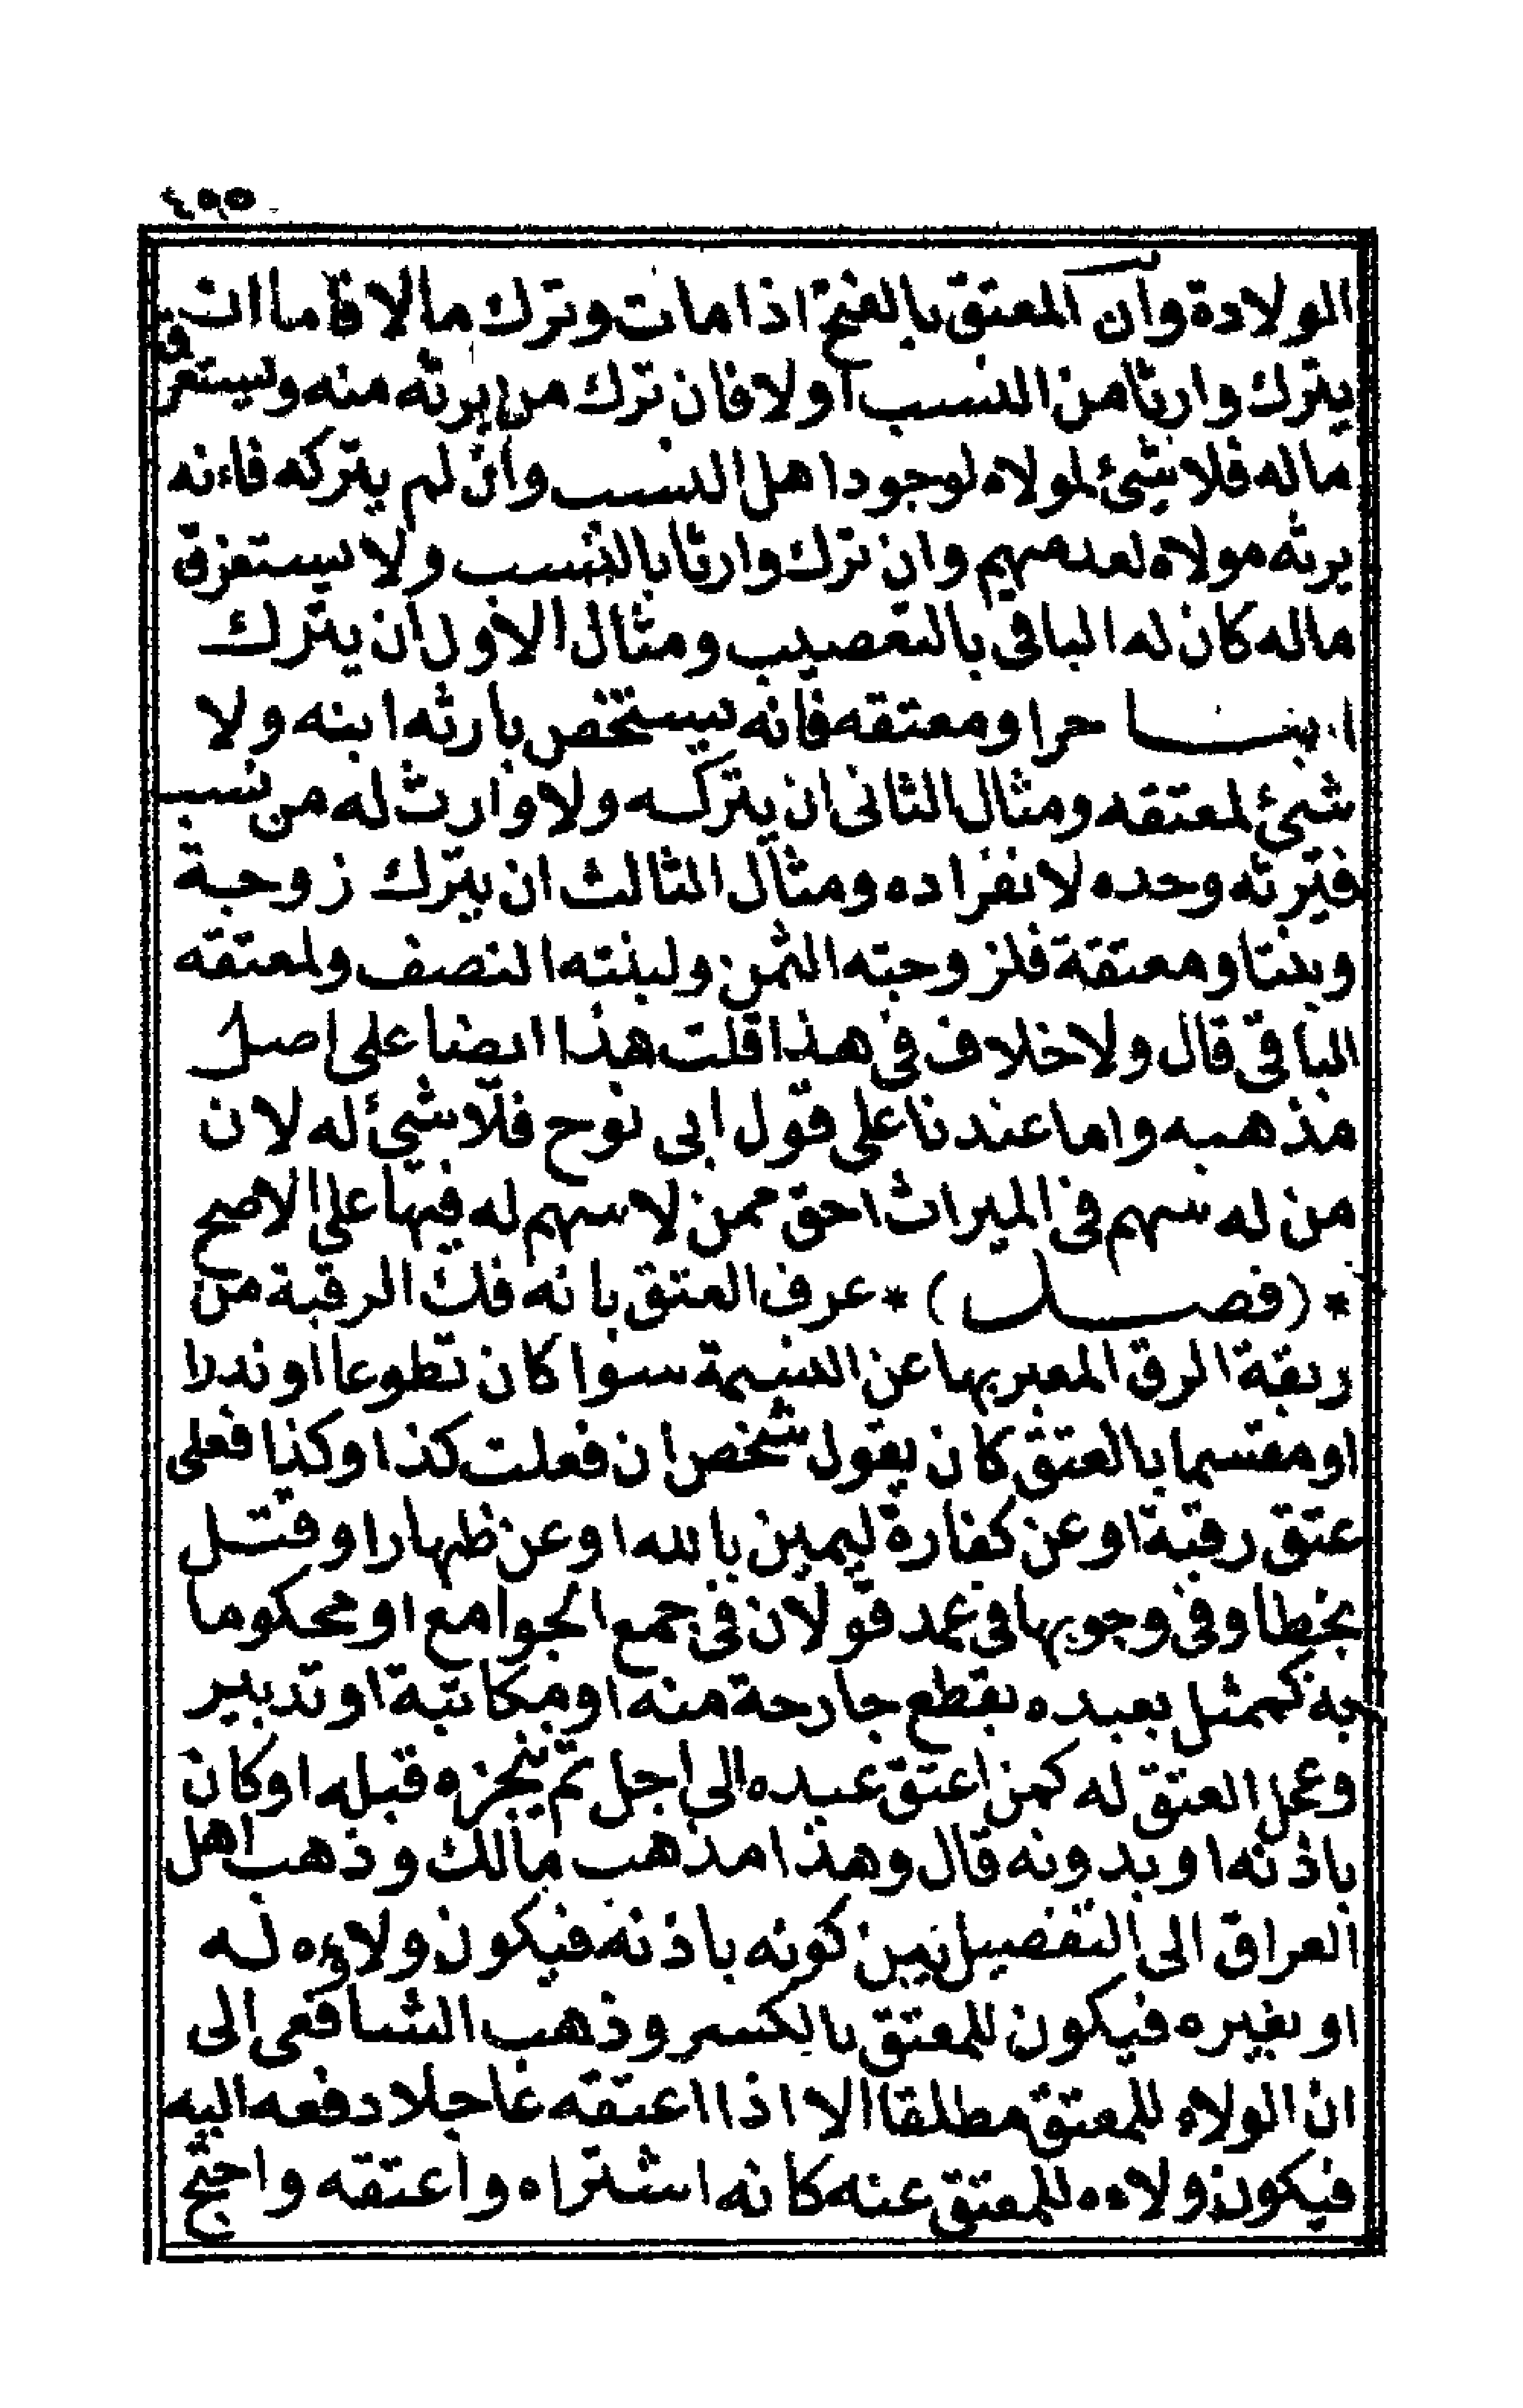 ٤٥٥
الولادة وان المعتق بالفتح اذا مات وترك مالا فاما ان
يترك وارثا من النسب اولا فان ترك من يرثه منه ويستغرق
ماله فلا شئ لمولاه لوجود اهل النسب وان لم يتركه فاءنه
يرثه مولاه لعدمهم وان ترك وارثا بالنسب ولا يستغرق
ماله كان له الباقى بالتعصيب ومثال الاول ان يترك
ابنا حرا ومعتقه فانه يستخص بارثه ابنه ولا
شئ لمعتقه ومثال الثانى ان يتركه ولا وارث له من نسب
فيرثه وحده لانفراده ومثال الثالث ان يترك زوجة
وبنتا ومعتقة فلزوجته الثمن ولبنته النصف ولمعتقه
الباقى قال ولا خلاف فى هذا قلت هذا ايضا على اصل
مذهبه واما عندنا على قول ابى نوح فلا شئ له لان
من له سهم فى الميراث احق ممن لا سهم له فيها على الاصح
*(فصل)* عرف العتق بانه فك الرقبة من
ربقة الرق المعبر بها عن النسمة سوا كان تطوعا او ندرا
او مقسما بالعتق كان يقول شخص ان فعلت كذا وكذا فعلى
عتق رقبة او عن كفارة ليمين بالله او عن ظهار او قتل
بخطا وفى وجوبها فى عمد قولان فى جمع الجوامع او محكوما
به كممثل بعبده بقطع جارحة منه او مكاتبة او تدبير
وعجل العتق له كمن اعتق عبده الى اجل ثم ينجزه قبله او كان
باذنه او بدونه قال وهذا مذهب مالك وذهب اهل
العراق الى التفضيل بين كونه باذنه فيكون ولاؤه له
او بغيره فيكون للمعتق بالكسر وذهب الشافعى الى
ان الولاء للمعتق مطلقا الا اذا اعتقه عاجلا دفعه اليه
فيكون ولاءه للمعتق عنه كانه اشتراه واعتقه واحتج